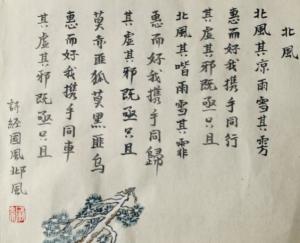 北風
北風其凉雨雪其雱
惠而好我携手同行
其虛其邪既亟只且
北風其喈雨雪其霏
惠而好我携手同歸
其虛其邪既亟只且
莫赤匪狐莫黑匪烏
惠而好我携手同車
其虛其邪既亟只且
詩經國風邶風